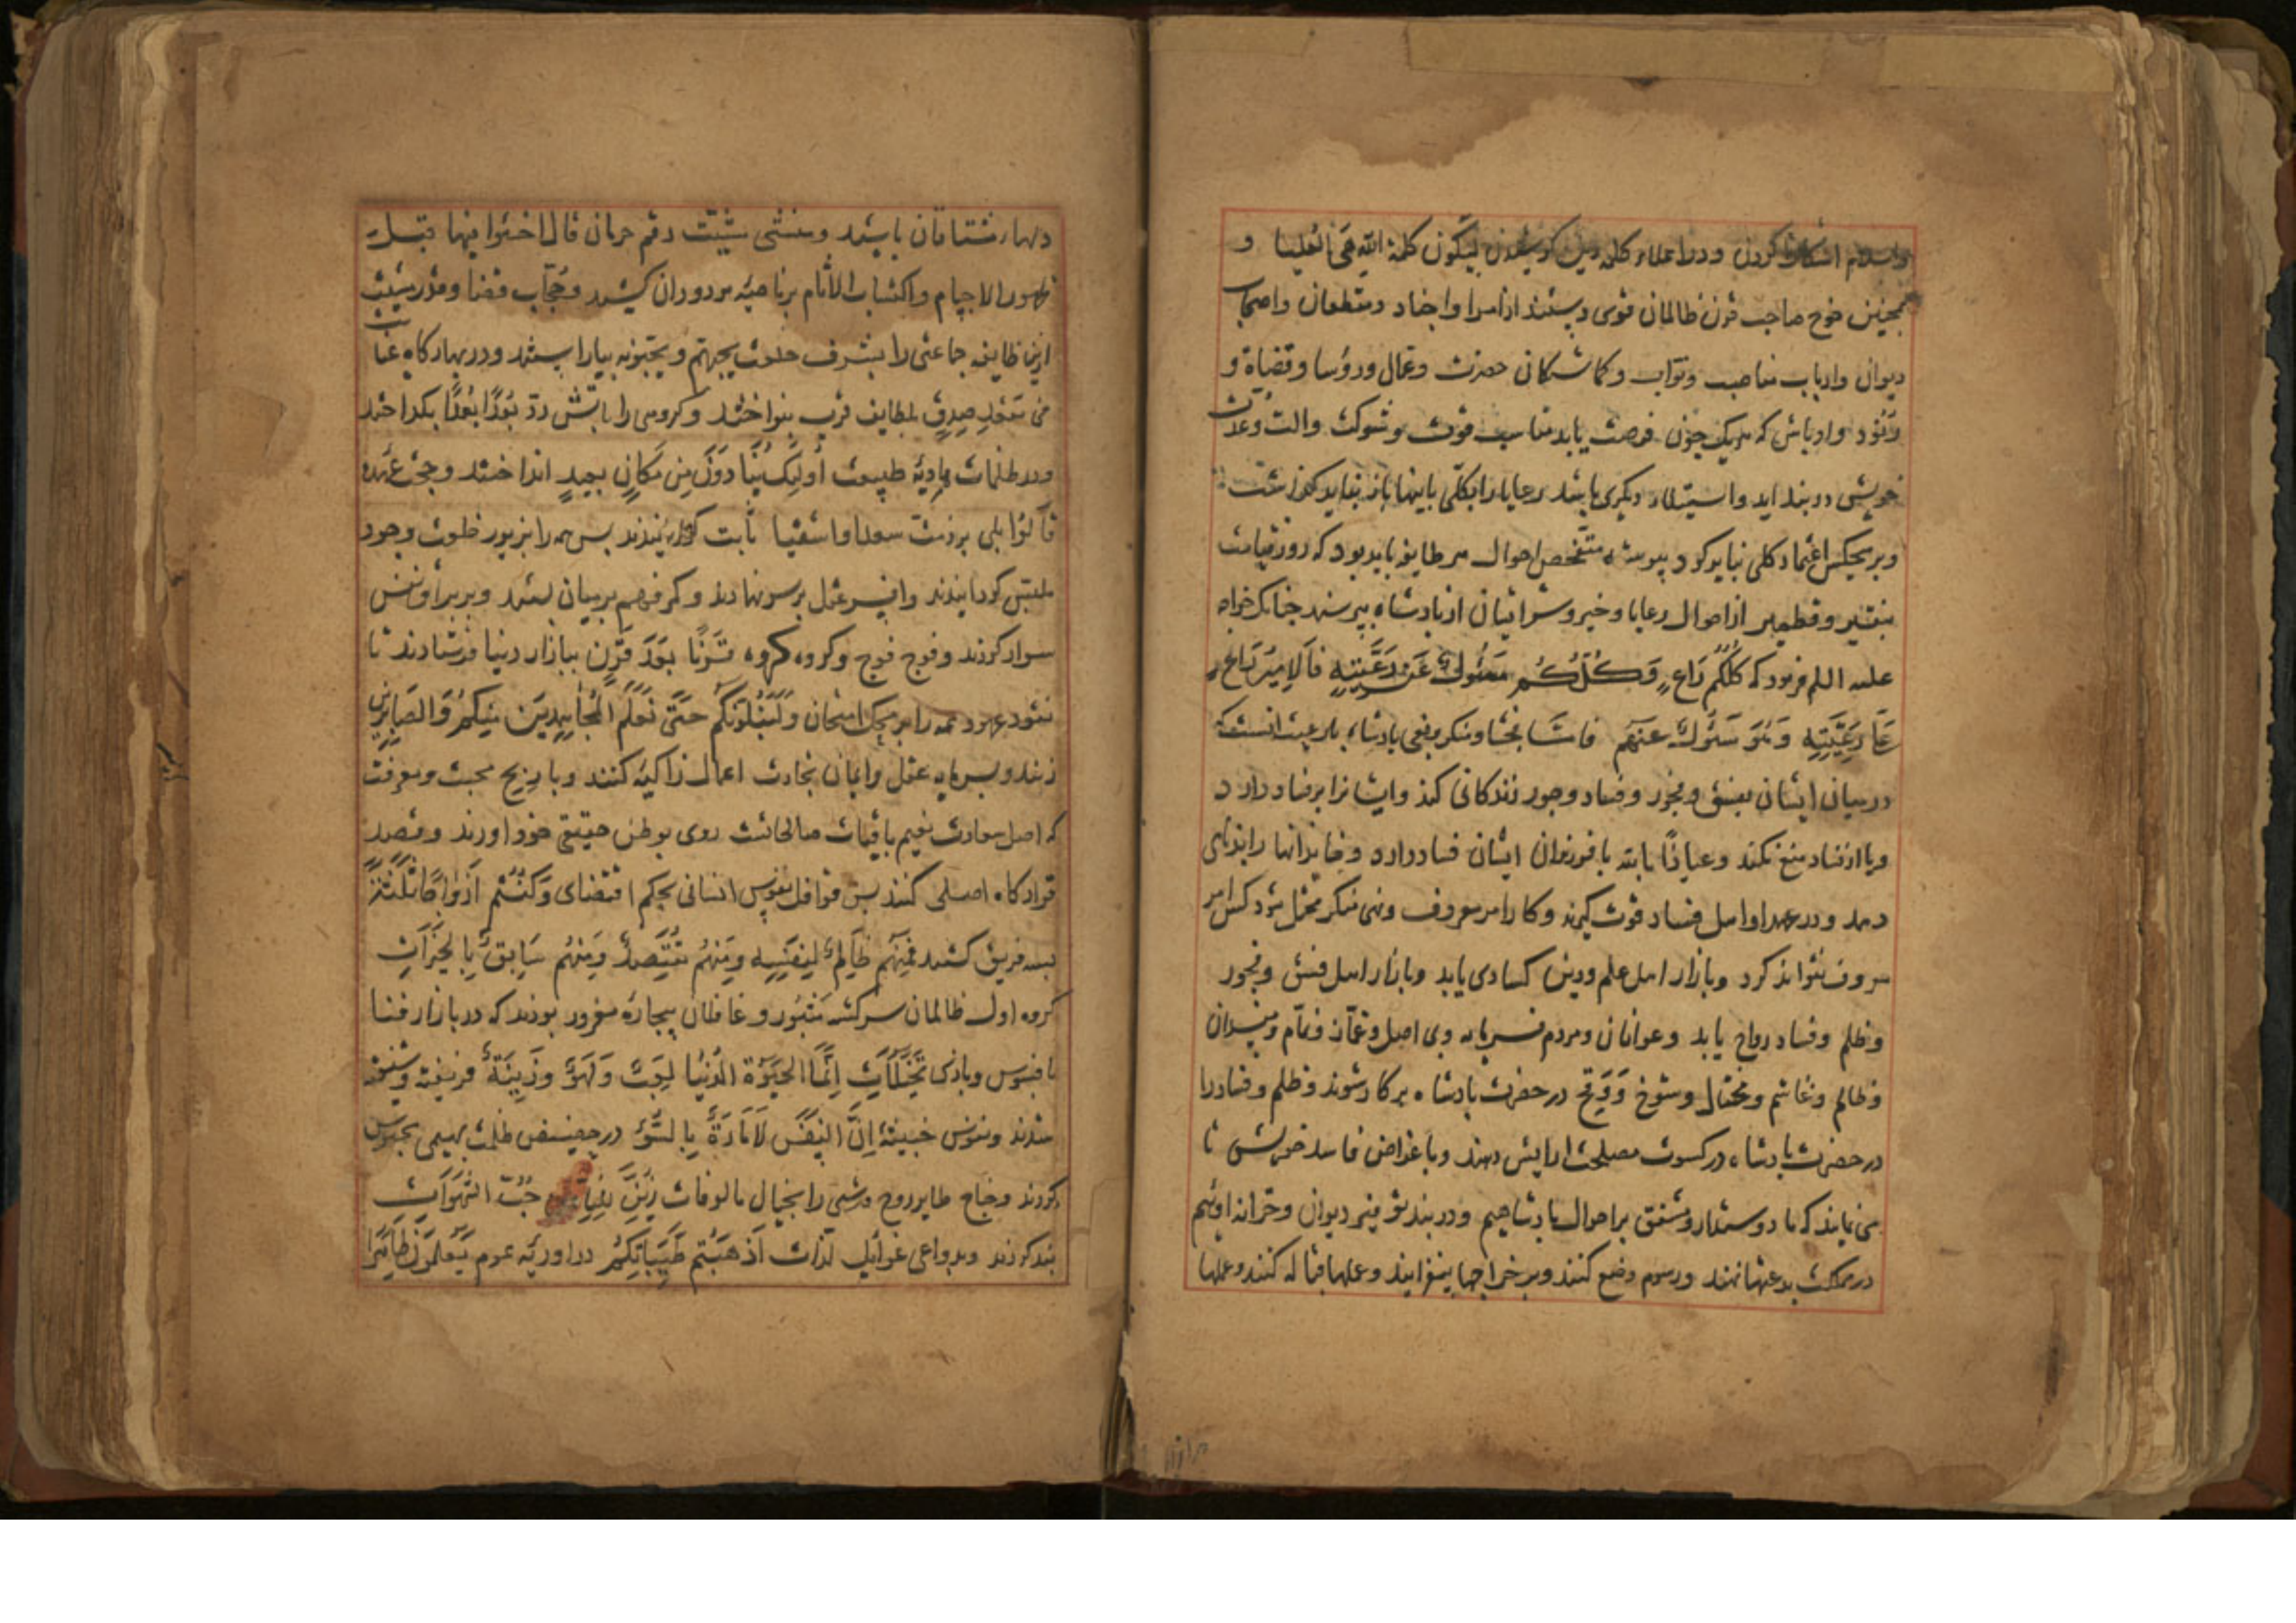 واسلام اشکارا کردن ودر اعلاء کلمه دین کوشیدن لیکون کلمة الله هی العلیا و
همچنین خوح صاحب قرن ظالمان قوی دستند از امرا واجناد ومقطعان واصحاب
دیوان وارباب مناصب ونواب وکماشتکان حضرت وعمال ورؤسا وقضاة و
رنود واوباش که هریک چون فرصت یابد مناسب قوت وشوکت والت وعدت
خویش دربند اید واستیلاء دیکری باشد رعایا را بکلی باینها باز نباید کذاشت
وبر هیچکس اعتماد کلی نباید کرد وپیوسته متفحص احوال هر طایفه باید بود که روز قیامت
بنقیر وقطمیر از احوال رعایا وخیر وشر ایشان از بادشاه بپرسند جنانک خواجه
علیه السلم فرمود که کلکم راع وکلکم مسئول عن رعیته فالامیر راع
علی رعیته وهو مسئول عنهم فاما فحشا ومنکر وبغی بادشاه با رعیت انست که
در میان ایشان بفسق وفجور وفساد وجور زندکانی کند وایشانرا بر فساد دارد
ویا از فساد منع نکند وعیاذا بالله با فرزندان ایشان فساد دارد وخاندانها را بدنامی
دهد ودر عهد او اهل فساد قوت کیرند وکار امر معروف ونهی منکر مختل شود کس امر
معروف نتواند کرد وبازار اهل علم ودین کسادی یابد وبازار اهل فسق وفجور
وظلم وفساد رواج یابد وعوانان ومردم فرومایه وبی اصل وغماز ونمام ومفسدان
وظالم وغاشم ومختال وشوخ ووقیح در حضرت بادشاه بر کار شوند وظلم وفساد را
در حضرت بادشاه در کسوت مصلحت ارایش دهند وبا غراض فاسد خویش تا
می نمایند که ما دوستدار ومشفق بر احوال بادشاهیم ودر بند توفیر دیوان وخزانه اوئیم
در مملکت بدعتها نهند ورسوم وضع کنند وبر خراجها بیفزایند وعملها قباله کنند وعملها
دلهاء مشتاقان باشد ومنشی مشیت رقم حرمان قال اخسئوا فیها قبل
ظهور الاجسام واکتساب الاثام بر ناصیه مردودان کشید وحجاب قضا ومقدر مشیت
ازین طایفه جماعتی را بشرف خلعت یحبهم ویحبونه بیاراستند ودر بهارکاه عنایت
فی مقعد صدق بلطایف قرب بنواختند وکروهی را باتش رد بعدا بعدا بکداختند
ودر ظلمات هاویه طبیعت اولئک ینادون من مکان بعید انداختند وحجت عهد
قالوا بلی بر ذمت سعدا واشقیا ثابت کردانیدند پس همه را بزیور خلعت وجود
ملبس کردانیدند وافسر عقل بر سر نهادند وکمر فهم بر میان بستند وبر براق نفس
سوار کردند وفوج فوج وکروه کروه قرنا بعد قرن ببازار دنیا فرستادند تا
نقود عهود همه را بر محک امتحان ولنبلونکم حتی نعلم المجاهدین منکم والصابرین
زنند وبسرمایه عقل وایمان تجارت اعمال زاکیه کنند وبا ربح محبت ومعرفت
که اصل سعادت نعیم باقیات صالحاتست روی بوطن حقیقی خود اورند وقصد
قرارکاه اصلی کنند پس قوافل نفوس انسانی بحکم اقتضای وکنتم ازواجا ثلثة
بسه فریق کشتند فمنهم ظالم لنفسه ومنهم مقتصد ومنهم سابق بالخیرات
کروه اول ظالمان سرکشته متهور وغافلان بیچاره مغرور بودند که در بازار فنا
بافسوس وبازی تخیلات انما الحیوة الدنیا لعب ولهو وزینة فریفته وشیفته
شدند ونفوس خبیثه ان النفس لامارة بالسوء در حضیض ظلمت بهیمی محبوس
کردند وجناح طایر روح قدسی را بخیال مالوفات زین للناس حب الشهوات
بند کردند وبدواعی غوایل لذات اذهبتم طیباتکم در اودیه عموم یعلمون ظاهرا